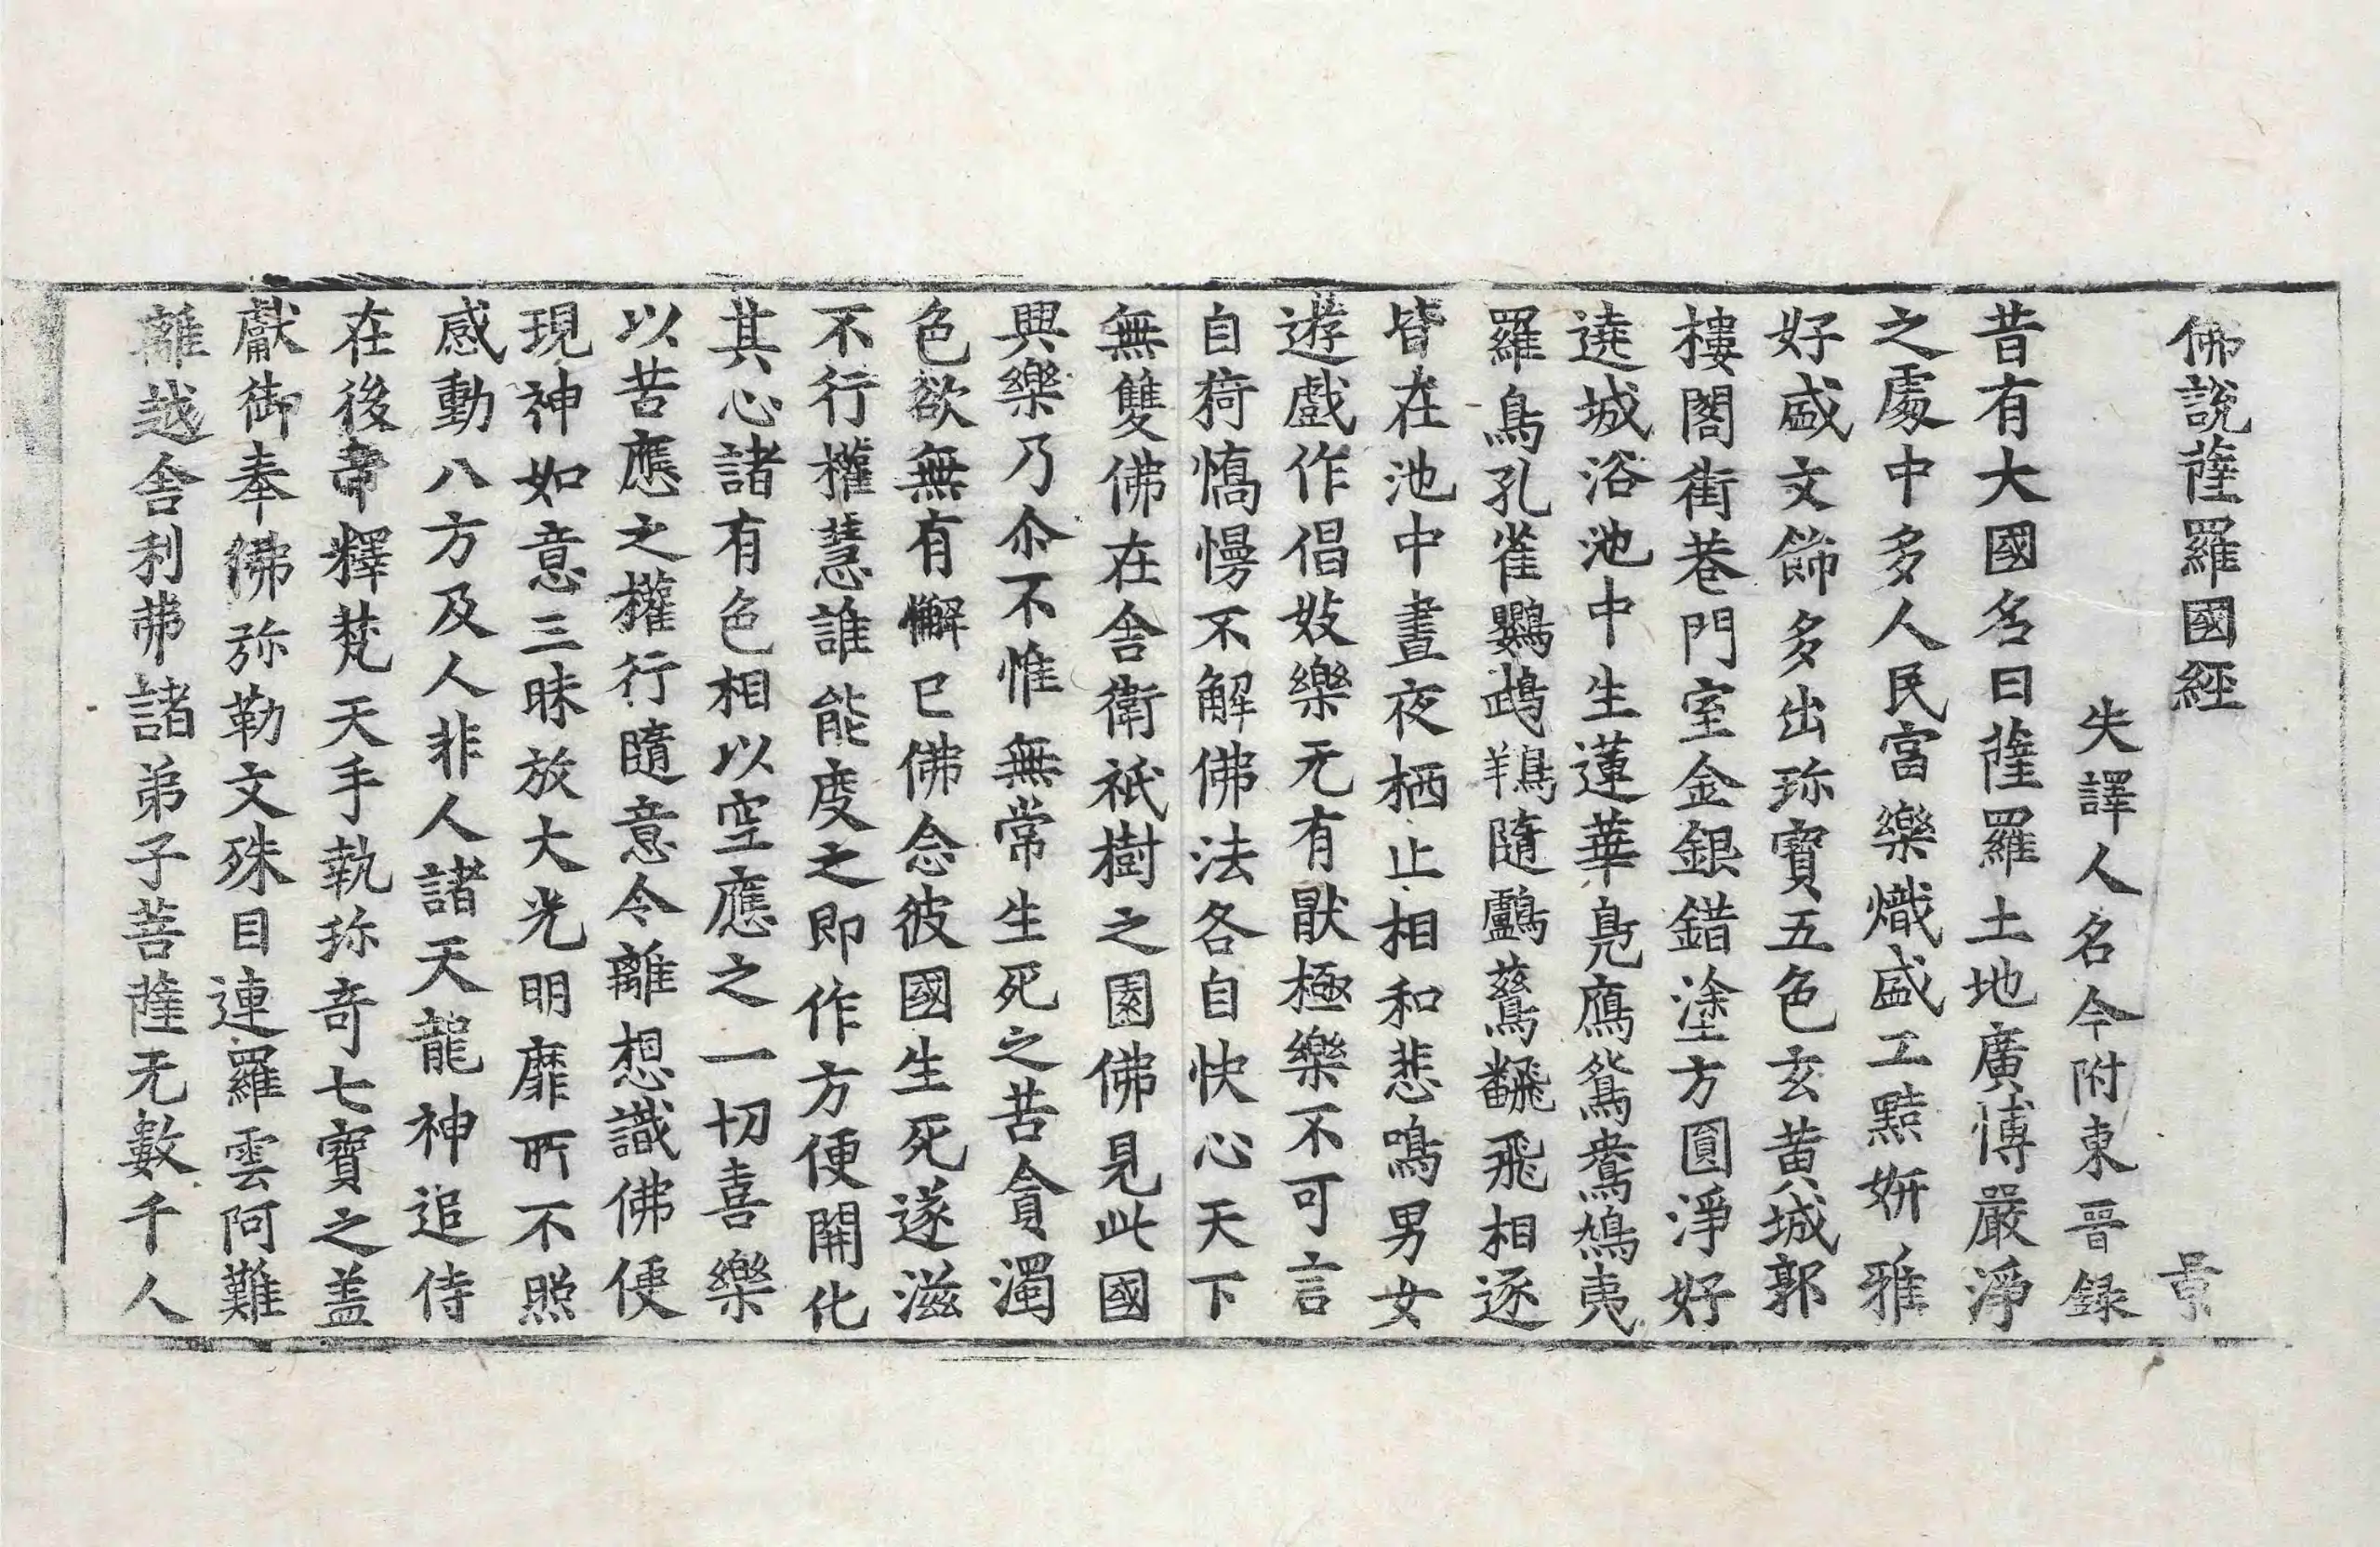 佛說薩羅國經　景
失譯人名今附東晉録
昔有大國名曰薩羅土地廣博嚴淨
之處中多人民富樂熾盛工黠妍雅
好盛文飾多出珎寶五色玄黄城郭
樓閣街巷門室金銀錯塗方圓淨好
遶城浴池中生蓮華鳬鴈鴛鴦鵁夷
羅鳥孔雀鸚鵡鴹隨鸕鶿飜飛相逐
皆在池中晝夜栖止相和悲鳴男女
遊戲作倡妓樂无有猒極樂不可言
自猗憍慢不解佛法各自快心天下
無雙佛在舎衛祇樹之園佛見此國
興樂乃尒不惟無常生死之苦貪濁
色欲無有懈已佛念彼國生死遂滋
不行權慧誰能度之即作方便開化
其心諸有色相以空應之一切喜樂
以苦應之權行隨意令離想識佛便
現神如意三昧放大光明靡所不照
感動八方及人非人諸天龍神追侍
在後帝釋梵天手執珎奇七寶之盖
獻御奉佛弥勒文殊目連羅雲阿難
離越舎利弗諸弟子菩薩无數千人